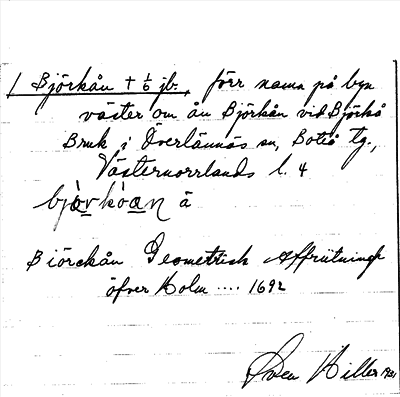 / Björkån + 1/6 jb., förr namn på byn
väster om ån Björkån vid Björkå
Bruk i Överlännäs sn, Boteå tg.,
Västernorrlands l. 4
bjòrkòan å
Biörckån Geometrisk Affritningh
öfver Holm .... 1692
Sven Hiller 1931